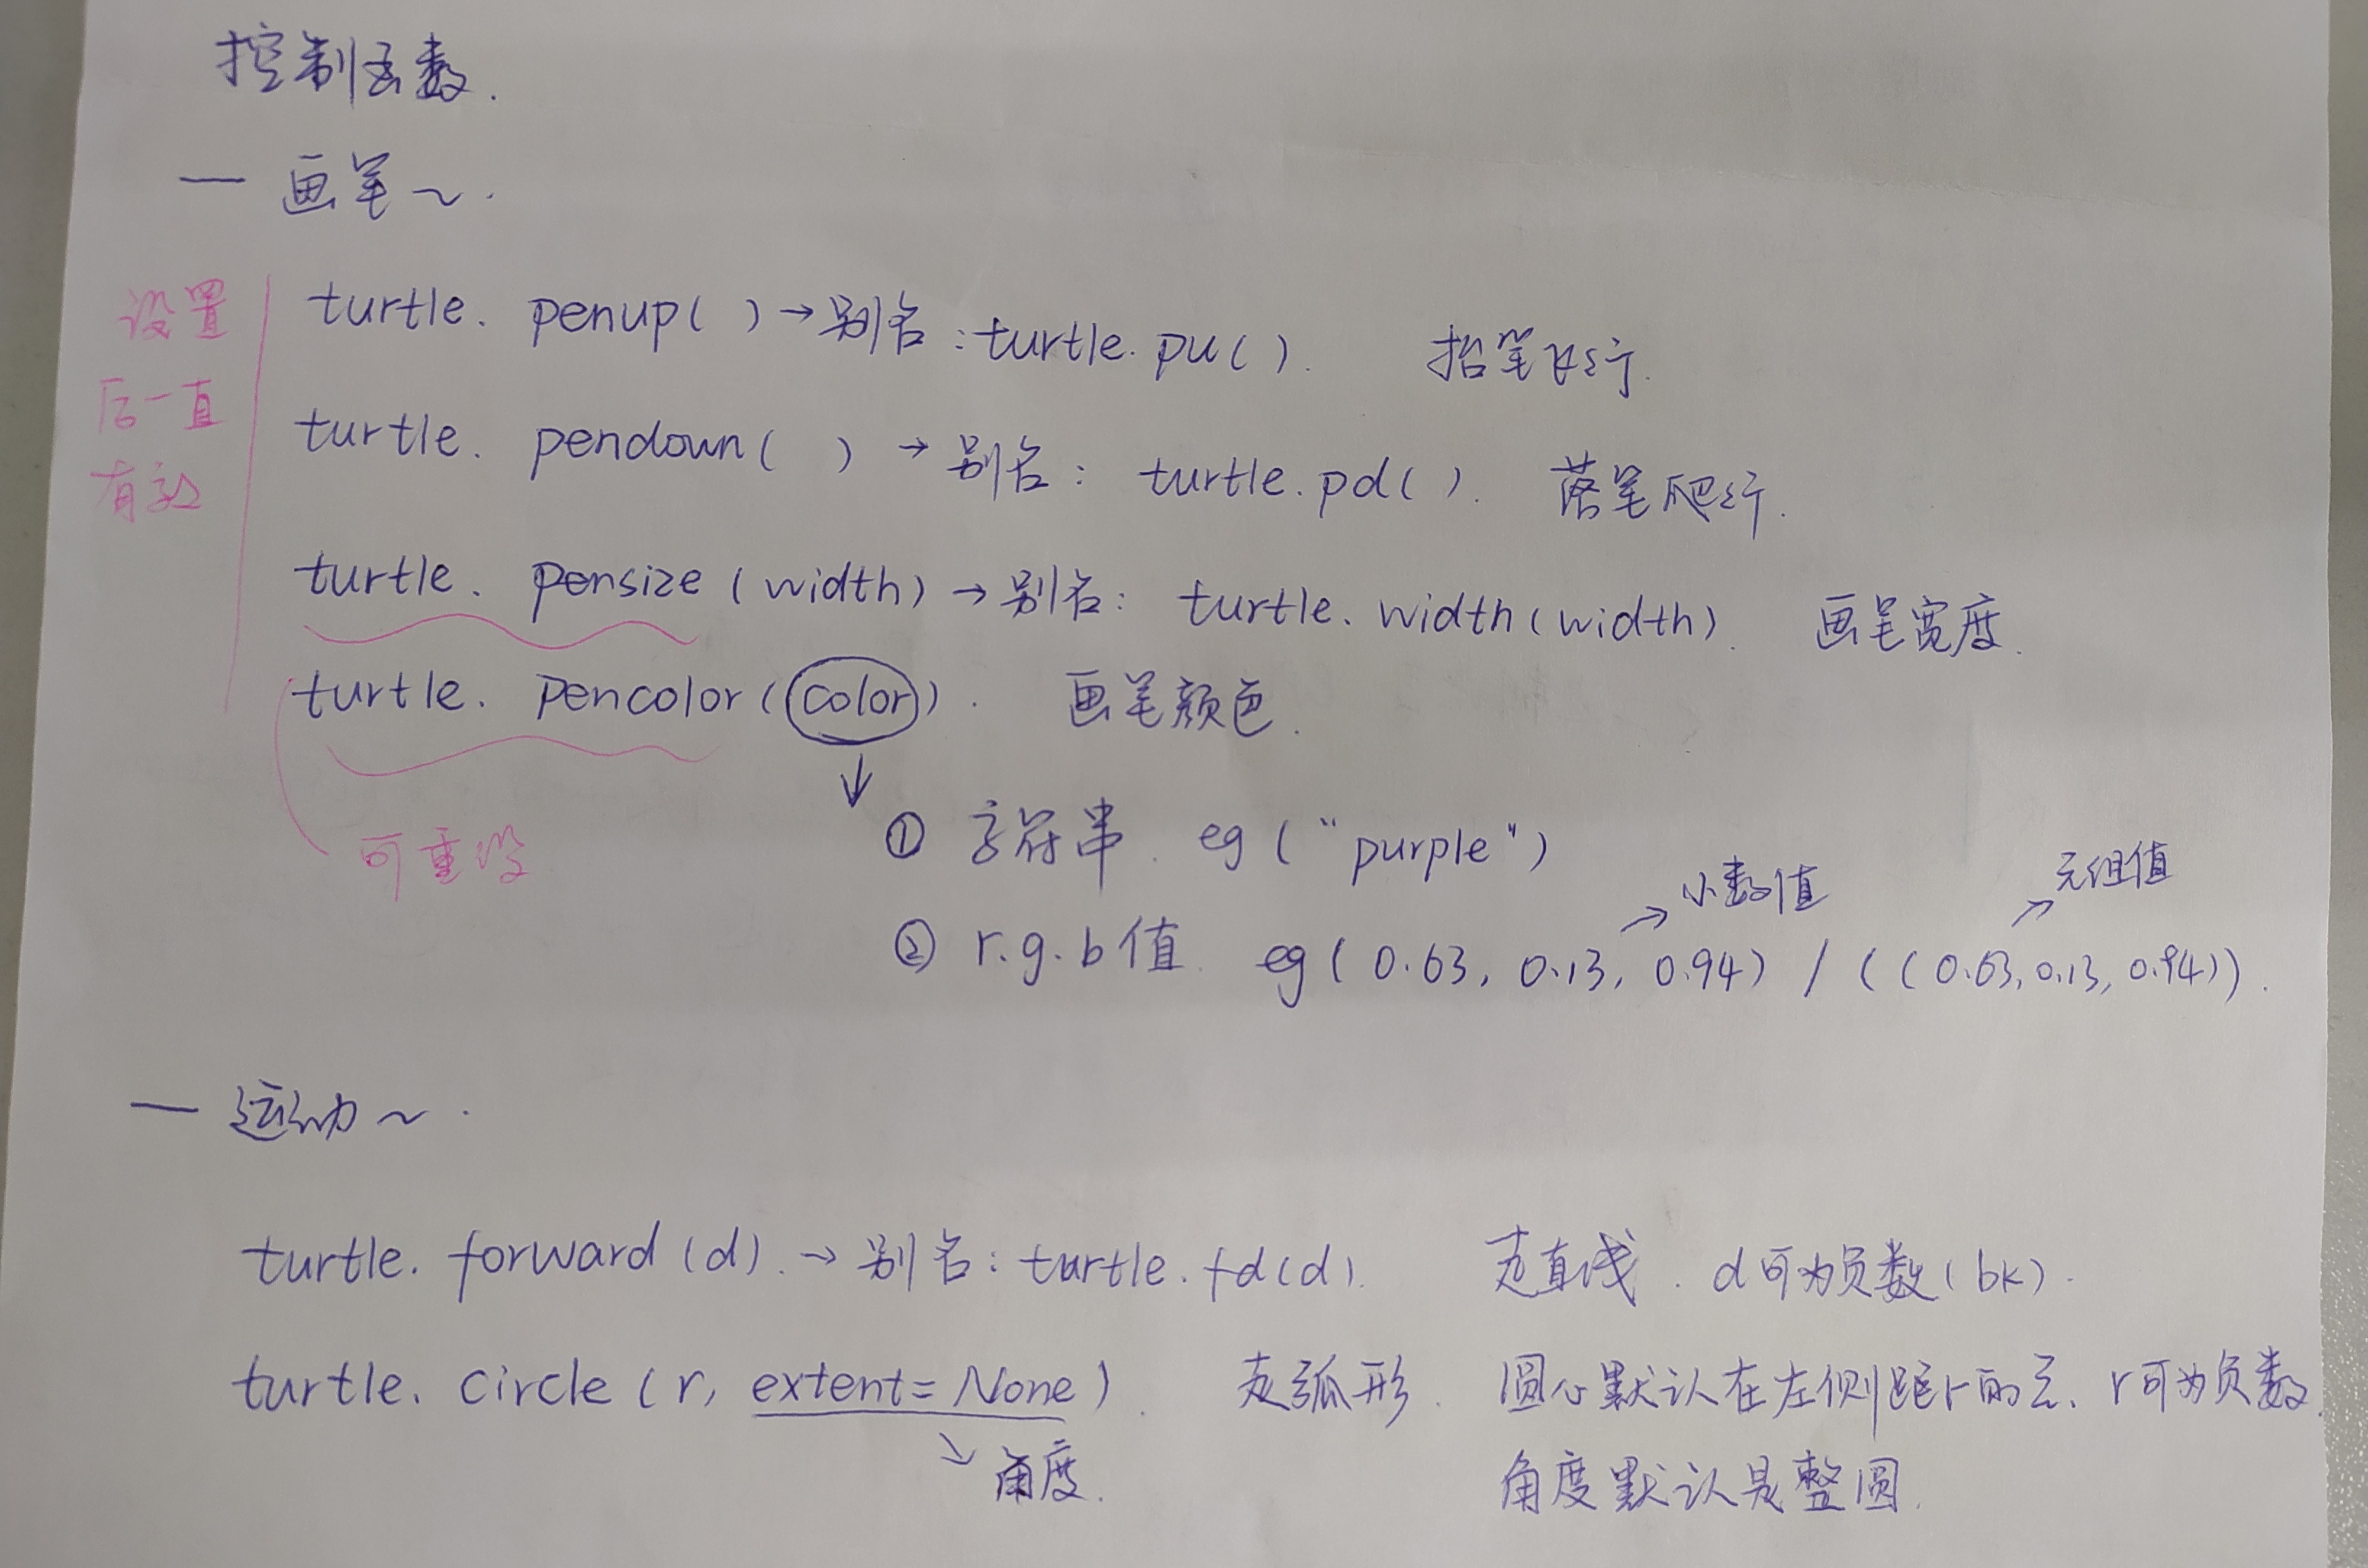 控制函数.
一 画笔~.
设置
后一直
有效
turtle. penup( )→别名:turtle.pu(). 抬笔飞行.
turtle. pendown( ) → 别名: turtle.pd(). 落笔爬行.
turtle. pensize (width) → 别名: turtle.width(width). 画笔宽度.
turtle. pencolor(color). 画笔颜色.
可重设
↓
① 字符串. eg ("purple")
→小数值 →元组值
② r.g.b值. eg( 0.63, 0.13, 0.94) / ((0.63,0.13,0.94)).
一 运动~.
turtle. forward (d). → 别名: turtle.fd(d). 走直线. d可为负数(bk).
turtle. circle (r, extent=None). 走弧形. 圆心默认在左侧距r的点. r可为负数.
→ 角度. 角度默认是整圆.